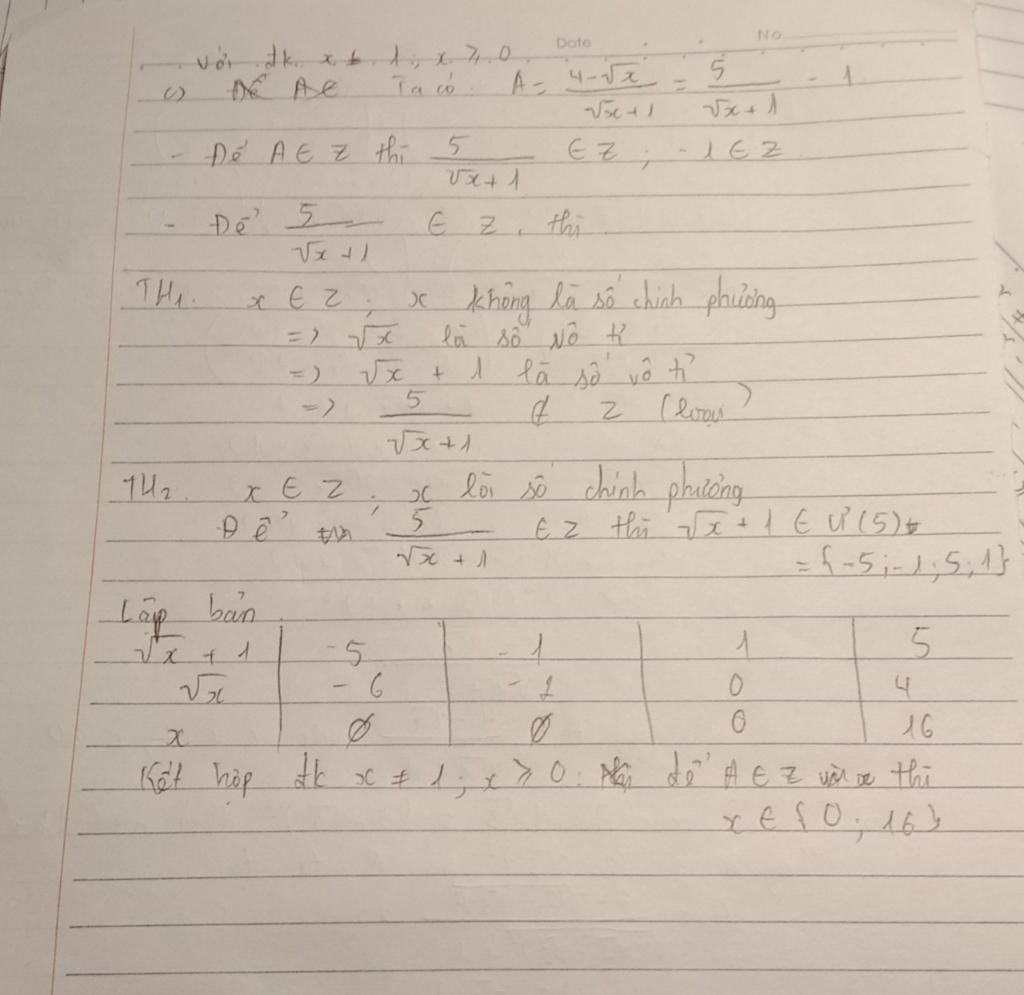 Date No
với đk x ≠ 1; x ≥ 0
c) Để A∈ Ta có. A = (4-√x)/(√x+1) = 5/(√x+1) - 1
- Để A ∈ Z thì 5/(√x+1) ∈ Z ; -1 ∈ Z
- Để 5/(√x+1) ∈ Z, thì
TH1. x ∈ Z ; x không là số chính phương
=> √x là số vô tỉ
=> √x + 1 là số vô tỉ
=> 5/(√x+1) ∉ Z (loại)
TH2. x ∈ Z ; x là số chính phương
Để 5/(√x+1) ∈ Z thì √x + 1 ∈ Ư(5)
= {-5;-1;5;1}
Lập bản
√x + 1 -5 -1 1 5
√x -6 -2 0 4
x ∅ ∅ 0 16
Kết hợp đk x ≠ 1 ; x ≥ 0. để A ∈ Z thì
x ∈ {0; 16}